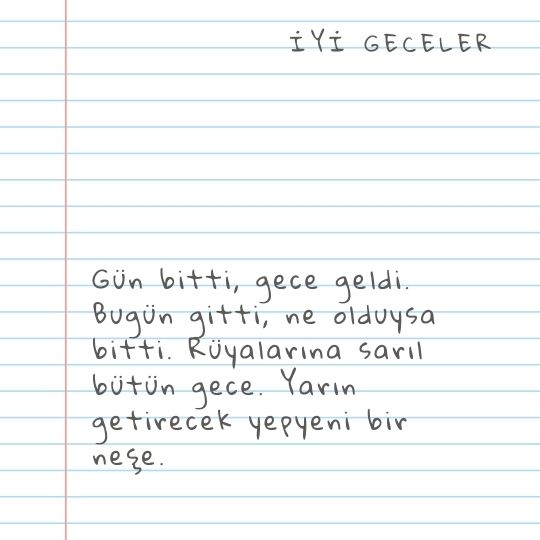 İYİ GECELER
Gün bitti, gece geldi.
Bugün gitti, ne olduysa
bitti. Rüyalarına sarıl
bütün gece. Yarın
getirecek yepyeni bir
neşe.